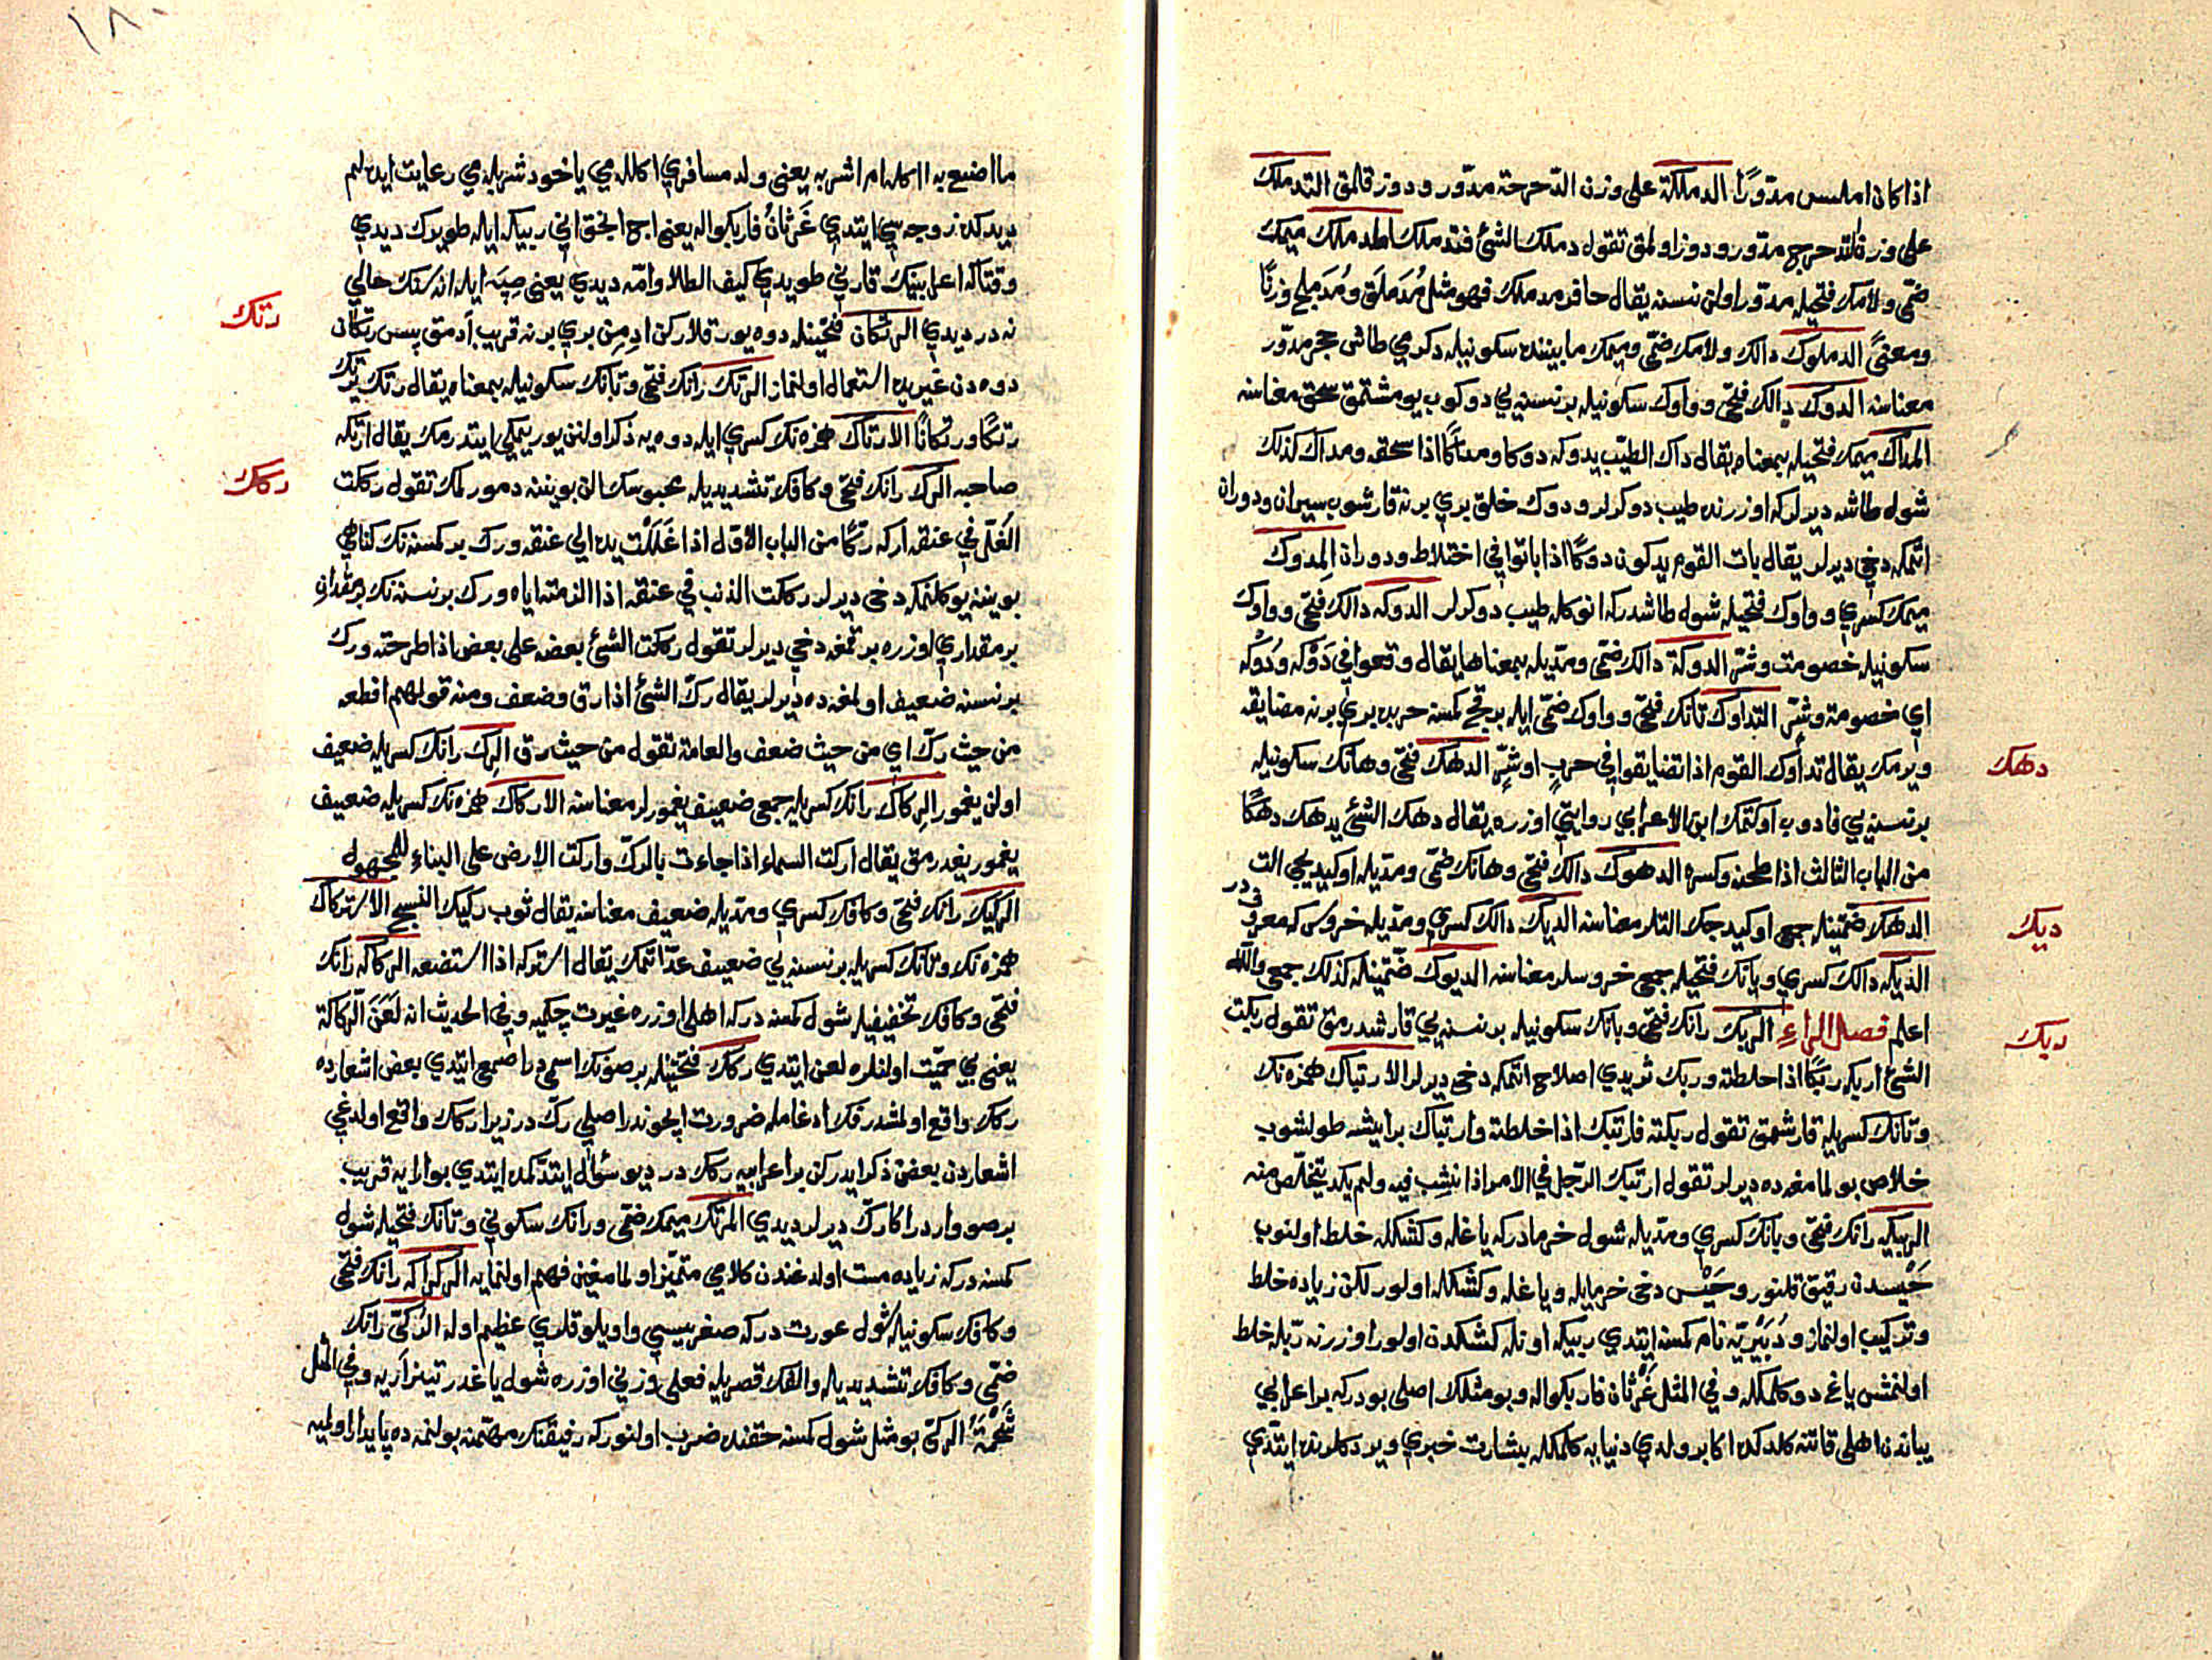 اذا كان املس مدوّرًا الدملكة على وزن الدّحرجة مدوّر و دوز قلمق التدملك
على وزن التدحرج مدوّر و دوز اولمق تقول دملكت الشئ فتدملك المدملك ميمك
ضمّى ولامك فتحيله مدوّر اولن نسنه يقال حافر مدملك فهو مثل مُدَملَق ومُدَملج وزنًا
ومعنىً الدملوك دالك ولامك ضمّى وميمك مابيننده سكونيله دكرمي طاش حجر مدوّر
معناسنه الدوك دالك فتحى وواوك سكونيله بر نسنه يي دوكوب يومشتمق سحق معناسنه
المداك ميمك فتحيله بمعناه يقال داك الطيّب يدوكه دوكا ومداكًا اذا سحقه ومداك كذلك
شول طاشه ديرلر كه اوزرنده طيب دوكرلر ودوك خلق بري برنه قارشوب سيران ودوران
اتمكه دخي ديرلر يقال بات القوم يدوكون دوكًا اذا باتوا في اختلاط ودوران المدوك
ميمك كسري وواوك فتحيله شول طاشدر كه انوكله طيب دوكرلر الدوكه دالك فتحى وواوك
سكونيله خصومت وشرّ الدوكة دالك ضمّى ومدّيله بمعناها يقال وقعوا في دَوْكه ودُوكه
اي خصومة وشرّ التداوك تانك فتحى وواوك ضمّى ايله برقچ كمسنه حربده بري برنه مضايقه
ويرمك يقال تداوك القوم اذا تضايقوا في حربٍ او شرٍّ الدهك فتحى وهانك سكونيله
بر نسنه يي فادوب اوكتمك ابن الاعرابي روايتي اوزره يقال دهك الشئ يدهك دهكًا
من الباب الثالث اذا طحنه وكسره الدهوك دالك فتحى وهانك ضمّى ومدّيله اوكيديجي الت
الدهك ضمّتينله جمعى اوكيدجك التلر معناسنه الديك دالك كسري ومدّيله خروس كه معروفدر
الديكه دالك كسري ويانك فتحيله جمعى خروسلر معناسنه الديوك ضمّتينله كذلك جمعى والله
اعلم فصل الراء الربك رانك فتحى وبانك سكونيله بر نسنه يي قارشدرمق تقول ربكت
الشئ اربكه ربكًا اذا خلطته وربك ثريدي اصلاح اتمكه دخى ديرلر الارتباك همزه نك
وتانك كسريله قارشمق تقول ربكته فارتبك اذا خلطته وارتباك بر ايشه طولشوب
خلاص بولمامغه ده ديرلر تقول ارتبك الرّجل في الامر اذا نشب فيه ولم يكد يتخلّص منه
الربيكه رانك فتحى وبانك كسري ومدّيله شول خرمادر كه ياغله وكشكله خلط اولنوب
حَيْسدن رقيق قلنور وحَيْس دخى خرمايله وياغله وكشكله اولور لكن زياده خلط
وتركيب اولنماز و دُبَيْريّه نام كمسنه ايتدي ربيكه اوله كشكدن اولور اوزرنه ربله خلط
اولنمش ياغ دوكلمكله وفي المثل غَرْثان فاربكوا له وبو مثلك اصلى بودر كه بر اعرابي
يباندن اهلى قاتنه كلدكده اكا بر ولدي دنيايه كلمكله بشارت خبري ويردكلرنده ايتدي
دهك
ديك
ربك
١٨٠
ما اصنع به ا اكله ام اشربه يعنى ولد مسافري اكللمي ياخود شربلمي رعايت ايده لم
ديدكده زوجه سي ايتدي غَرْثانُ فاربكوا له يعنى اج انحق اني ربيكه ايله طويورك ديدي
وقتاكه اعرابينك قارني طويدي كيف الطلا وامّه ديدي يعنى صبيّه ايله انه سنك حالي
نه در ديدي الرتكان فتحتينله دوه يورتقلاركن ادمن بري برنه قريب آدمق پس رتكان
دوه دن غيريده استعمال اولنماز الرتك رانك فتحى وتانك سكونيله بمعناه يقال رتك يرتك
رتكًا ورتكانًا الارتاك همزه نك كسري ايله دوه يه ذكر اولنن يوريمكي ايتدرمك يقال ارتكه
صاحبه الرك رانك فتحى وكافك تشديديله محبوسك الن بويننه دمورلمك تقول ركت
الغلّ في عنقه اركه ركًّا من الباب الاوّل اذا غللت يده الي عنقه ورك بر كمسنه نك كناهي
بويننه يوكلنمكه دخى ديرلر ركت الذنب في عنقه اذا الزمته اياه ورك بر نسنه نك بر مقداري
بر مقداري اوزره برقمغه دخي ديرلر تقول ركت الشئ بعضه على بعض اذا طرحته ورك
بر نسنه ضعيف اولمغه ده ديرلر يقال ركّ الشئ اذا رق وضعف ومنه قولهم اقطعه
من حيث ركّ اي من حيث ضعف والعامة تقول من حيث رق الرك رانك كسريله ضعيف
اولن يغمور الركاك رانك كسريله جمعى ضعيف يغمورلر معناسنه الاركاك همزه نك كسريله ضعيف
يغمور يغدرمق يقال اركت السماء اذا جاءت بالركّ واركت الارض على البناء للمجهول
الركيك رانك فتحى وكافك كسري ومدّيله ضعيف معناسنه يقال ثوب ركيك النسج الاستركاك
همزه نك وتانك كسريله بر نسنه يي ضعيف عدّ اتمك يقال استركه اذا استضعفه الركاكه رانك
فتحى وكافك تخفيفيله شول كمسنه در كه اهلى اوزره غيرت چكميه وفي الحديث انه لَعَنَ الرُّكاكة
يعنى بي حميّت اولنلره لعن ايتدي ركك فتحتينله بر صونك اسمي در اصمعى ايتدي بعض اشعارده
ركك واقع اولمشدر فك ادغامله ضرورت ايچوندر اصلي ركّ در زيرا ركك واقع اولدغي
اشعاردن بعضن ذكر ايدركن بر اعرابيه ركك در ديو سؤال ايتدكمده ايتدي بو ارايه قريب
بر صو واردر اكا ركّ ديرلر ديدي المرتك ميمك ضمّى ورانك سكوني وتانك فتحيله شول
كمسنه در كه زياده مست اولدغندن كلامي متميّز اولمامغين فهم اولنمايه الركراكه رانك فتحى
وكافك سكونيله شول عورت در كه صغريسي واويلوقلري عظيم اوله الرُّكّى رانك
ضمّى وكافك تشديديله والفك قصريله فعلى وزني اوزره شول ياغدر تيز اريه وفي المثل
شَحْمَة الركّى بو مثل شول كمسنه حقنده ضرب اولنور كه رفيقنك مهمّنه بولنمه ده پايدار اولميه
رتك
ركك